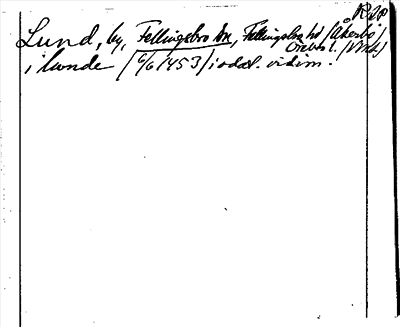 RAp.
Lund, by, Fellingsbro sn, Fellingsbro hd /Åkerbo/
Örebro l. /Vmld/
i lunde / 6/6 1453 / i odat. vidim.